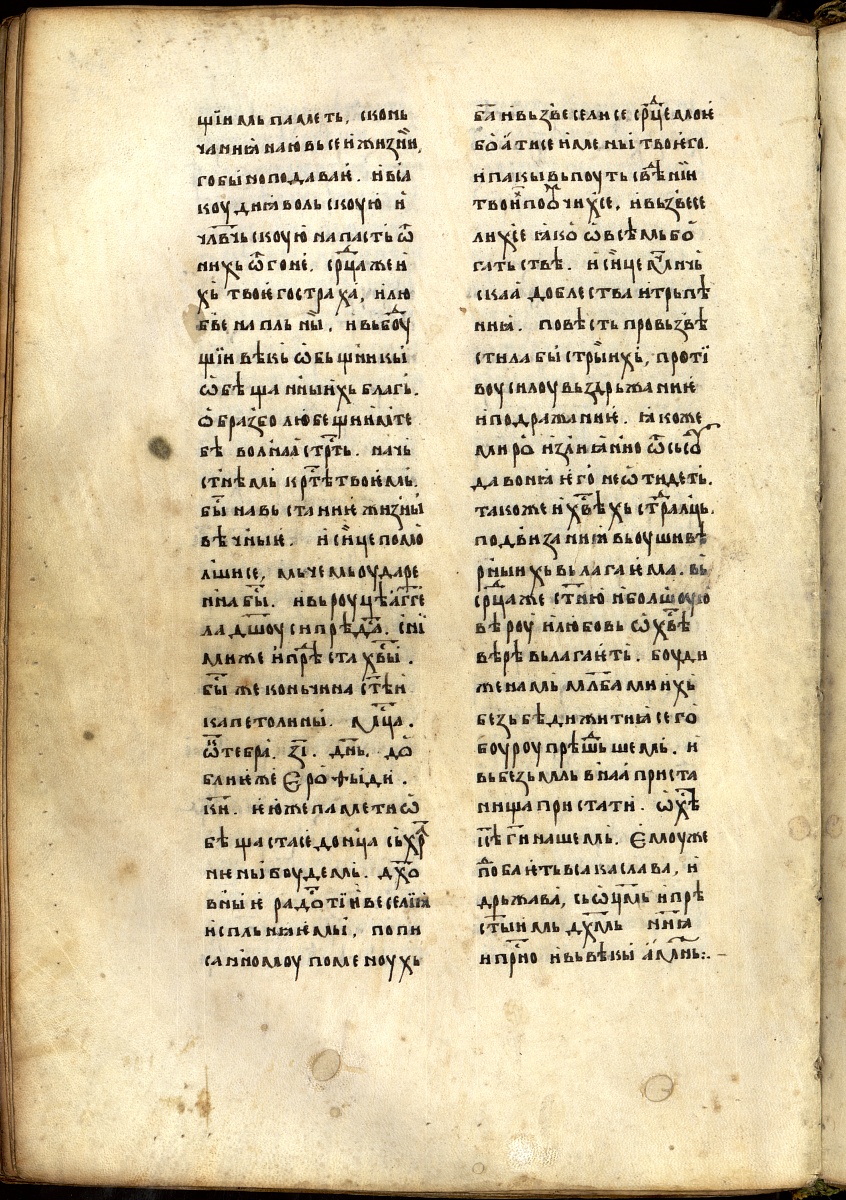 щїимь паметь, сконь
чанїꙗ наю вь сеи жизни,
го бы но подаваи. и вса
коу дїꙗвольскоую и
чл҃вчьскоую напасть ѿ
нихь ѿгоне. ср҃ца же и
хь твоѥго страха, и лю
бве напльни, и вь боуⷣ
щїи вѣкь ѡбьщники
ѡбѣщаннїихь благь.
ѡбразбо любещиимте
бѣ волнаа стрⷭ҇ть. начь
стнѣмь крⷭ҇тѣ твоѥмь.
бы на вьстаниѥ жизни
вѣчныѥ. и сице помо
лшисе, мьчемь оударе
нїа быⷭ҇. и вь роуцѣ агг҃е
ла дш҃оу си прѣдаⷭ҇. сни
миже и прѣста хв҃ы.
быⷭ҇ же коньчина ст҃ѣи
капетолины. мцⷭ҇а.
ѡктебра. з҃ї. дн҃ь. до
блиѥ же Ероѳиди.
к҃и. ѥюже памети ѡ
бѣщастасе дон҃ца сьхрⷭ҇
ниеныи боудемь. дх҃о
вныѥ радоⷭ҇ти и веселїа
испльнꙗѥмы, по пи
санномоу поменоухь
б҃а и вьзвеселисе ср҃це моѥ
боатисе имени твоѥго.
и пакы вь поуть свѣⷣнїи
твоиⷯ поⷹчихсе, и вьзвесе
лихсе ꙗко ѡ всѣмь бо
гатьствѣ. и сице мⷱ҇ничь
скаа доблества и трьпѣ
нїꙗ. повѣсть провьзвѣ
стила бы стрⷭ҇ныхь, проти
воу силоу вьздрьжаниѥ
и подражаниѥ. ꙗкоже
миро излиꙗнно ѿ сьсоуⷣ
да вонꙗ ѥго не ѡтидеть.
такоже и хв҃ѣхь стрⷭ҇алць.
подвизанїꙗ вь оуши вѣ
рныихь влагаѥма. вь
ср҃ца же ст҃ною и болшоую
вѣроу и любовь ѡ хв҃ѣ
вѣрѣ влагаѥть. боуди
же намь мл҃бами ихь
безь бѣди житїꙗ сего
боуроу прѣшьⷣшемь. и
вь безьмльвнаа приста
нища пристати. ѡ х҃ѣ
і҃сѣ г҃и нашемь. Ѥмоуже
поⷣбаѥть всака слава, и
дрьжава, сь ѡц҃мь и прѣ
ст҃ыимь дх҃мь нн҃ꙗ
и прⷭ҇но и вь вѣкы амⷩ҇нь:.